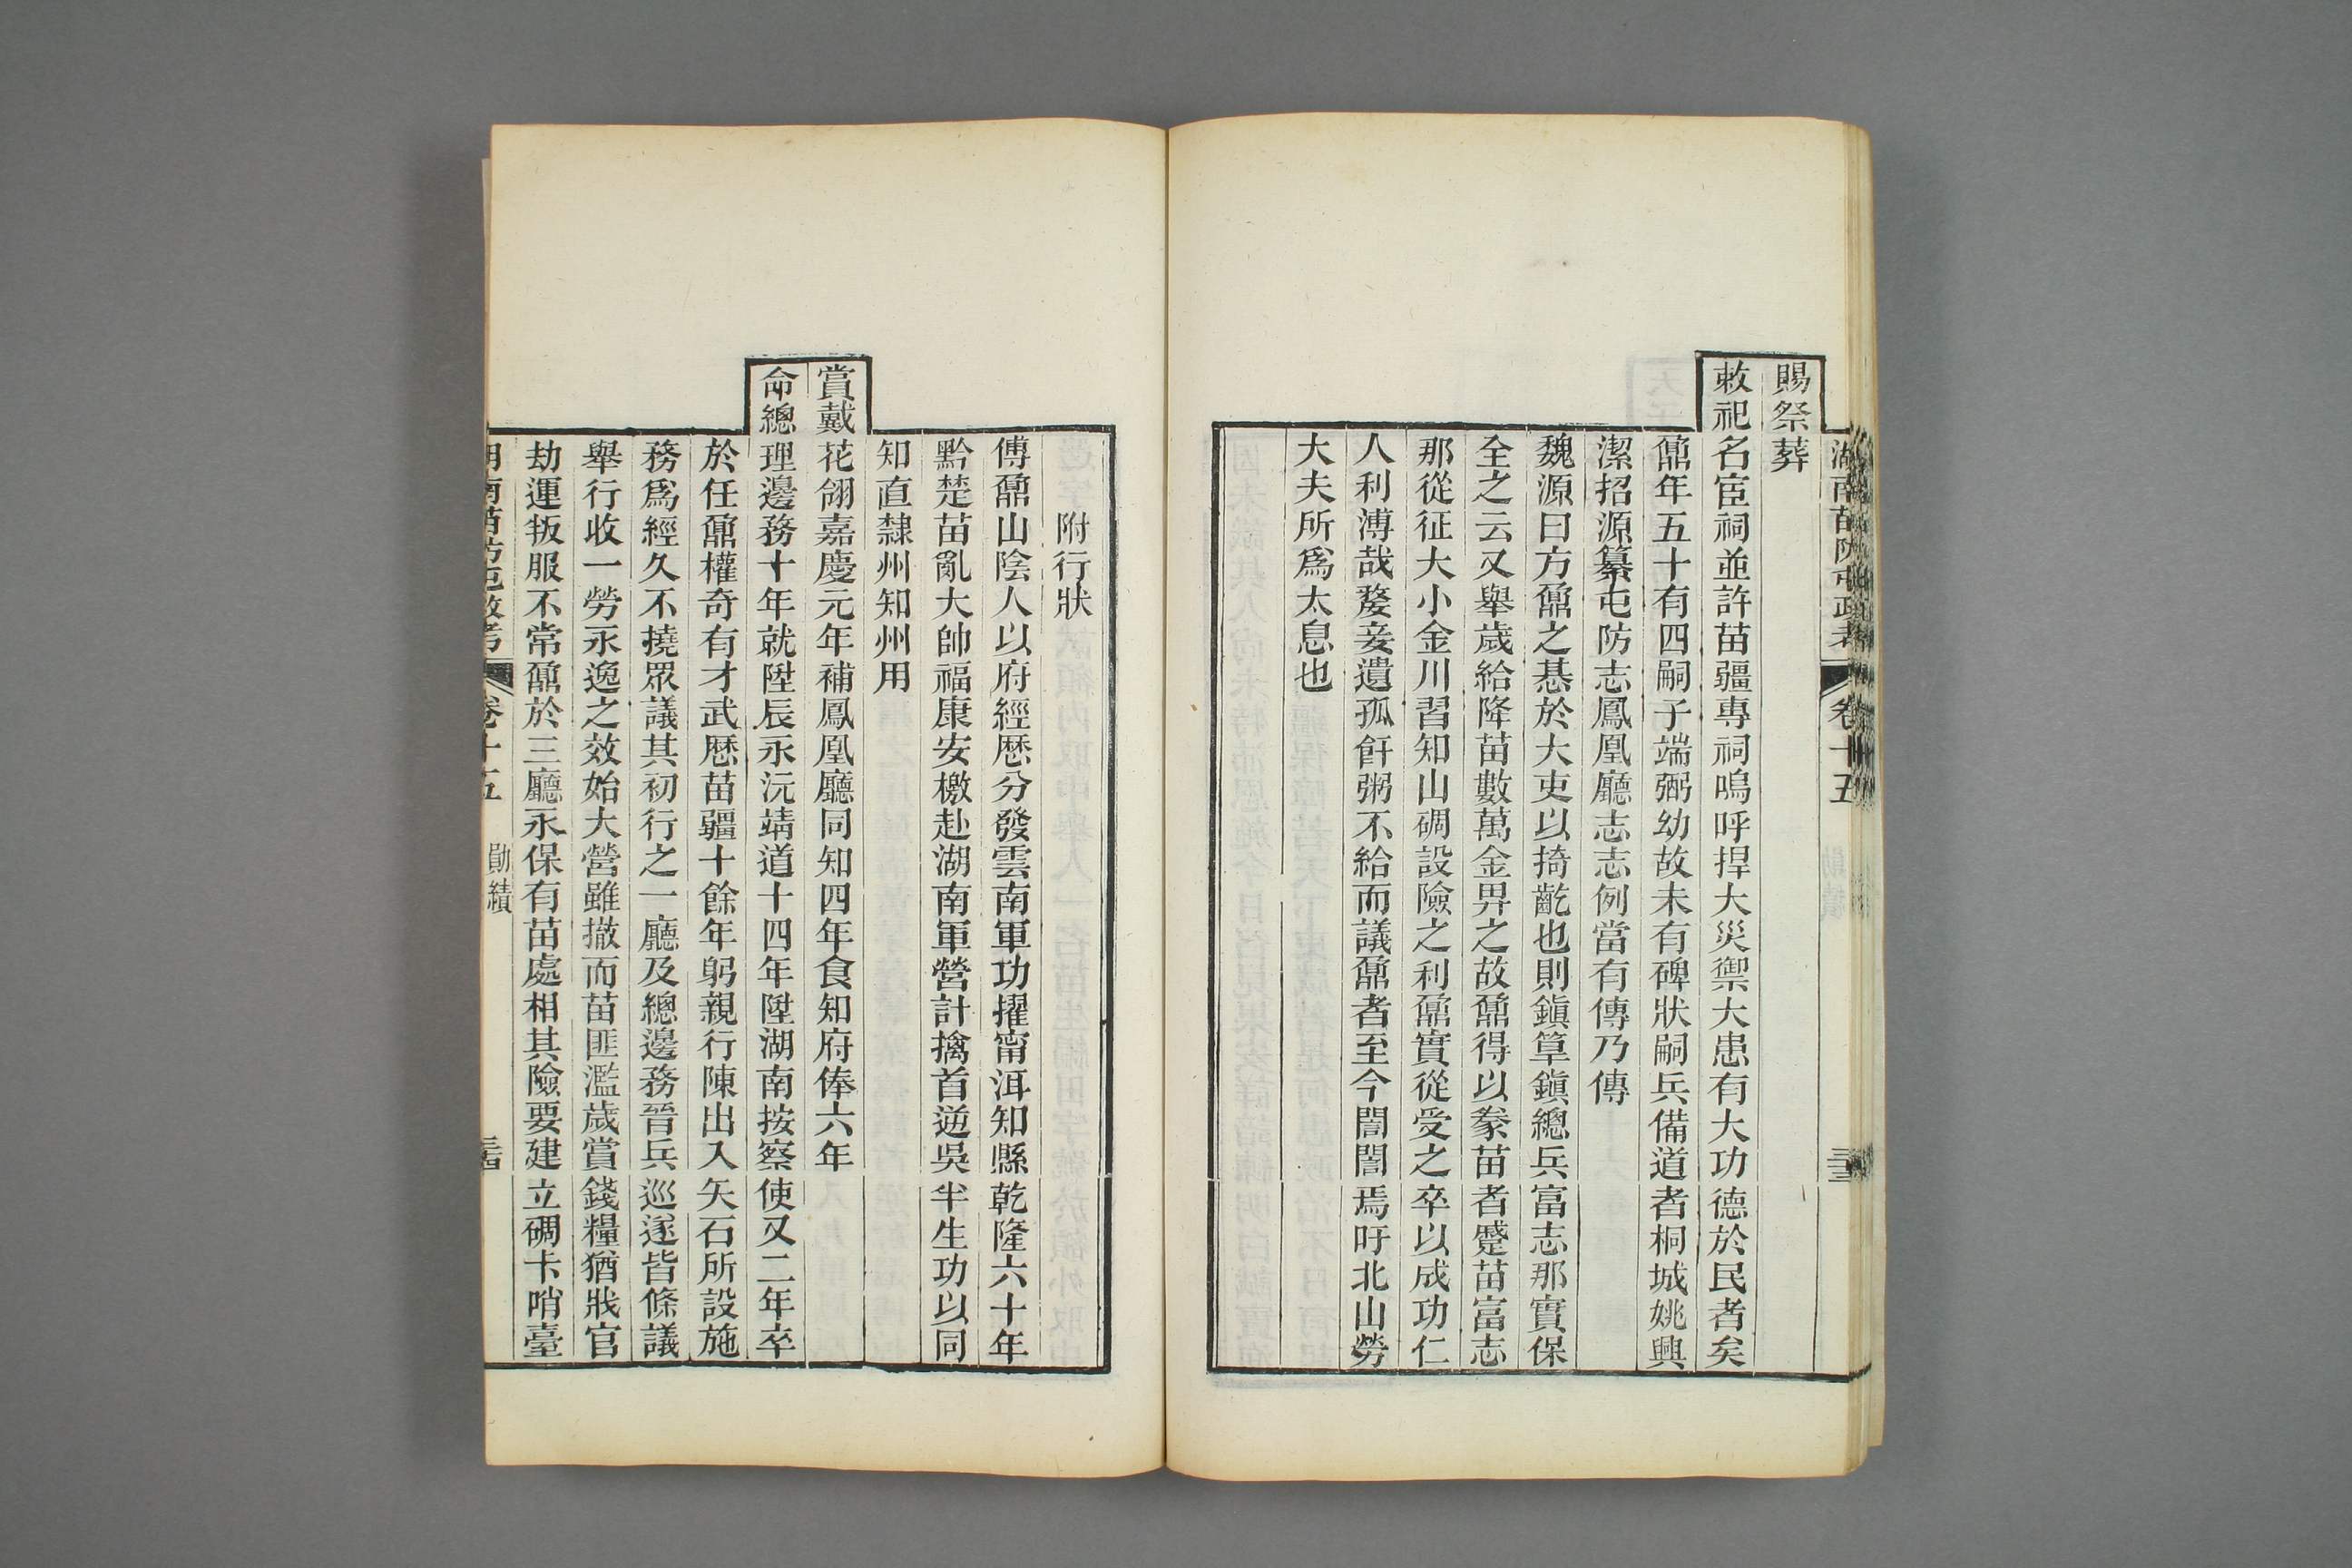 湖南苗防屯政考 卷十五 三十三
賜祭葬
敕祀名宦祠並許苗疆專祠嗚呼捍大災禦大患有大功德於民者矣
鼐年五十有四嗣子端弼幼故未有碑狀嗣兵備道者桐城姚興
潔招源纂屯防志鳳凰廳志志例當有傳乃傳
魏源曰方鼐之惎於大吏以掎齕也則鎭筸鎭總兵富志那實保
全之云又舉歲給降苗數萬金畀之故鼐得以豢苗者蹙苗富志
那從征大小金川習知山碉設險之利鼐實從受之卒以成功仁
人利溥哉嫠妾遺孤飦粥不給而議鼐者至今誾誾焉吁北山勞
大夫所爲太息也
附行狀
傅鼐山陰人以府經歴分發雲南軍功擢甯洱知縣乾隆六十年
黔楚苗亂大帥福康安檄赴湖南軍營計擒首逆吳半生功以同
知直隸州知州用
賞戴花翎嘉慶元年補鳳凰廳同知四年食知府俸六年
命總理邊務十年就陞辰永沅靖道十四年陞湖南按察使又二年卒
於任鼐權奇有才武歴苗疆十餘年躬親行陳出入矢石所設施
務爲經久不撓眾議其初行之一廳及總邊務晉兵巡遂皆條議
舉行收一勞永逸之效始大營雖撤而苗匪濫歲賞錢糧猶戕官
劫運叛服不常鼐於三廳永保有苗處相其險要建立碉卡哨臺
湖南苗防屯政考 卷十五 勛績